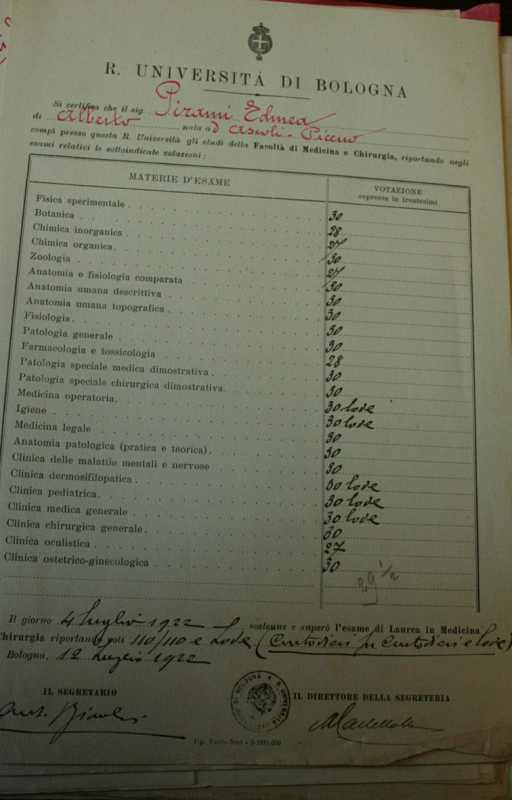 R. UNIVERSITÀ DI BOLOGNA
Si certifica che il sig. Pirani Edmea
di Alberto nata ad Ascoli-Piceno
compì presso questa R. Università gli studi della Facoltà di Medicina e Chirurgia, riportando negli
esami relativi le sottoindicate votazioni:
MATERIE D'ESAME VOTAZIONE
espressa in trentesimi
Fisica sperimentale 30
Botanica 28
Chimica inorganica 27
Chimica organica 30
Zoologia 27
Anatomia e fisiologia comparata 30
Anatomia umana descrittiva 30
Anatomia umana topografica 30
Fisiologia 30
Patologia generale 30
Farmacologia e tossicologia 28
Patologia speciale medica dimostrativa 30
Patologia speciale chirurgica dimostrativa 30
Medicina operatoria 30 lode
Igiene 30 lode
Medicina legale 30
Anatomia patologica (pratica e teorica) 30
Clinica delle malattie mentali e nervose 30
Clinica dermosifilopatica 30 lode
Clinica pediatrica 30 lode
Clinica medica generale 30 lode
Clinica chirurgica generale 30
Clinica oculistica 27
Clinica ostetrico-ginecologica 30
29 1/2
Il giorno 4 luglio 1922 sostenne e superò l'esame di Laurea in Medicina
Chirurgia riportando punti 110/110 e Lode (Centodieci su Centodieci e lode)
Bologna, 12 Luglio 1922
IL SEGRETARIO IL DIRETTORE DELLA SEGRETERIA